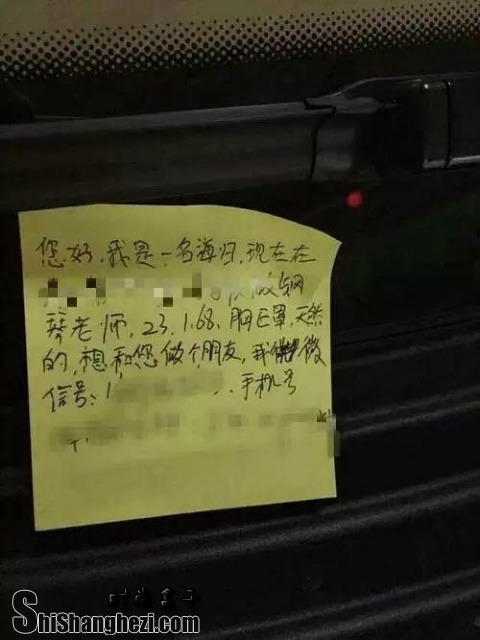 您好,我是一名海归,现在在
做钢
琴老师,23,1.68,胸E罩,天然
的,想和您做个朋友,我 微
信号:1 ,手机号
时尚盒子
ShiShanghezi.com